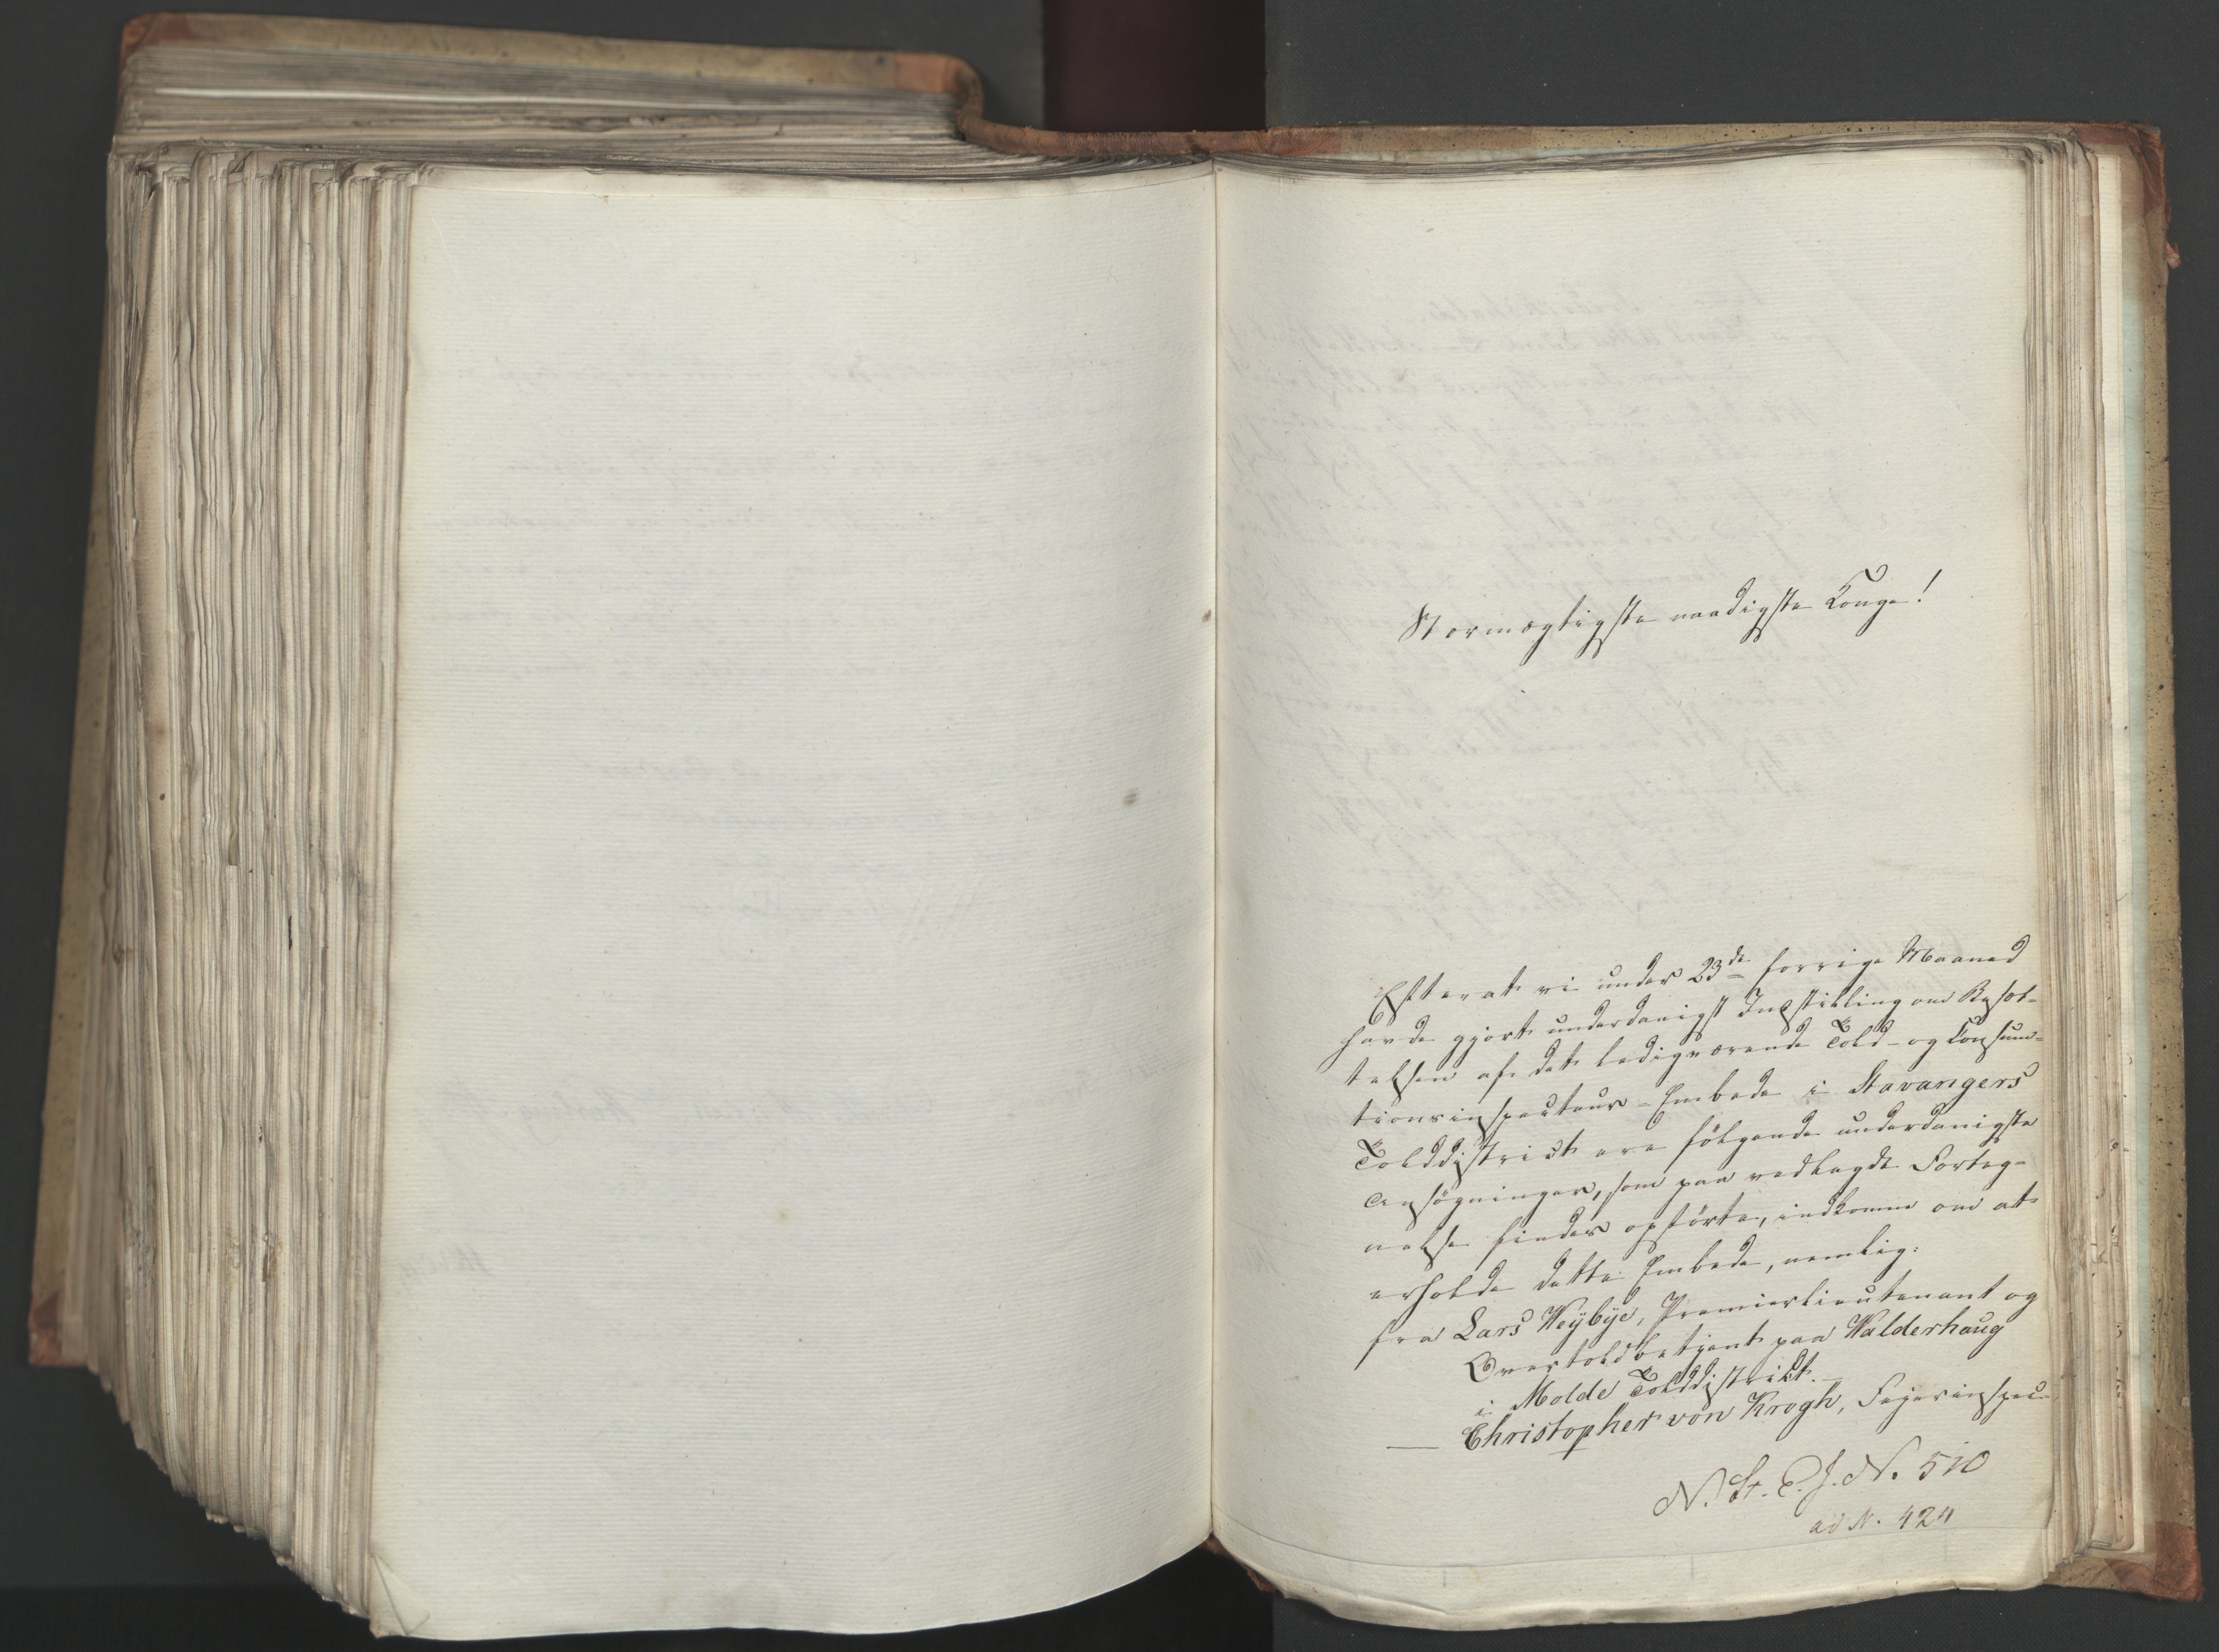 Stormægtigste naadigste Konge!
Efterat vi under 23de forrige Maaned
havde gjort underdanigst Indstilling om Besæt-
telsen af det ledigværende Told- og Consum-
tionsinspecteur-Embede i Stavangers
Tolddistrict ere følgende underdanigste
Ansøgninger, som paa vedlagde Forteg-
nelse findes opførte, indkomne om at
erholde dette Embede, nemlig:
fra Lars Weÿbÿe, Premierlieutenant og
Overtoldbetjent paa Walderhaug
i Molde Tolddistrikt.
— Christopher von Krogh, Vejerinspec-
N. St. E. J. N. 510
ad N. 424